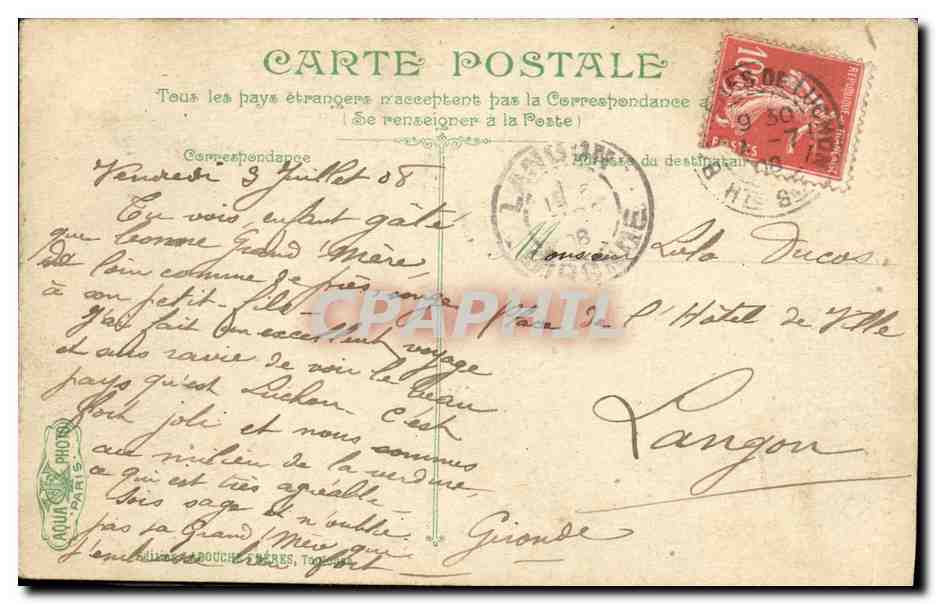 CARTE POSTALE
Tous les pays étrangers n'acceptent pas la Correspondance a
(Se renseigner à la Poste)
Correspondance
Adresse du destinataire
10
REPUBLIQUE FRANÇAISE
POSTES
S DE LUCHON
9 30
LANGON
GIRONDE
Vendredi 3 Juillet 08
Tu vois, enfant gâté
que bonne Grand'Mère
loin comme de près, songe
à son petit-fils -
J'ai fait un excellent voyage
et suis ravie de voir le beau
pays qu'est Luchon. C'est
fort joli et nous sommes
au milieu de la verdure,
ce qui est très agréable -
Sois sage et n'oublie
pas ta Grand'Mère qui
t'embrasse bien fort
Monsieur Lulo Ducos
Place de l'Hôtel de Ville
Langon
Gironde
CPAPHIL
AQUA PHOTO
PARIS
LABOUCHE FRÈRES, Toulouse